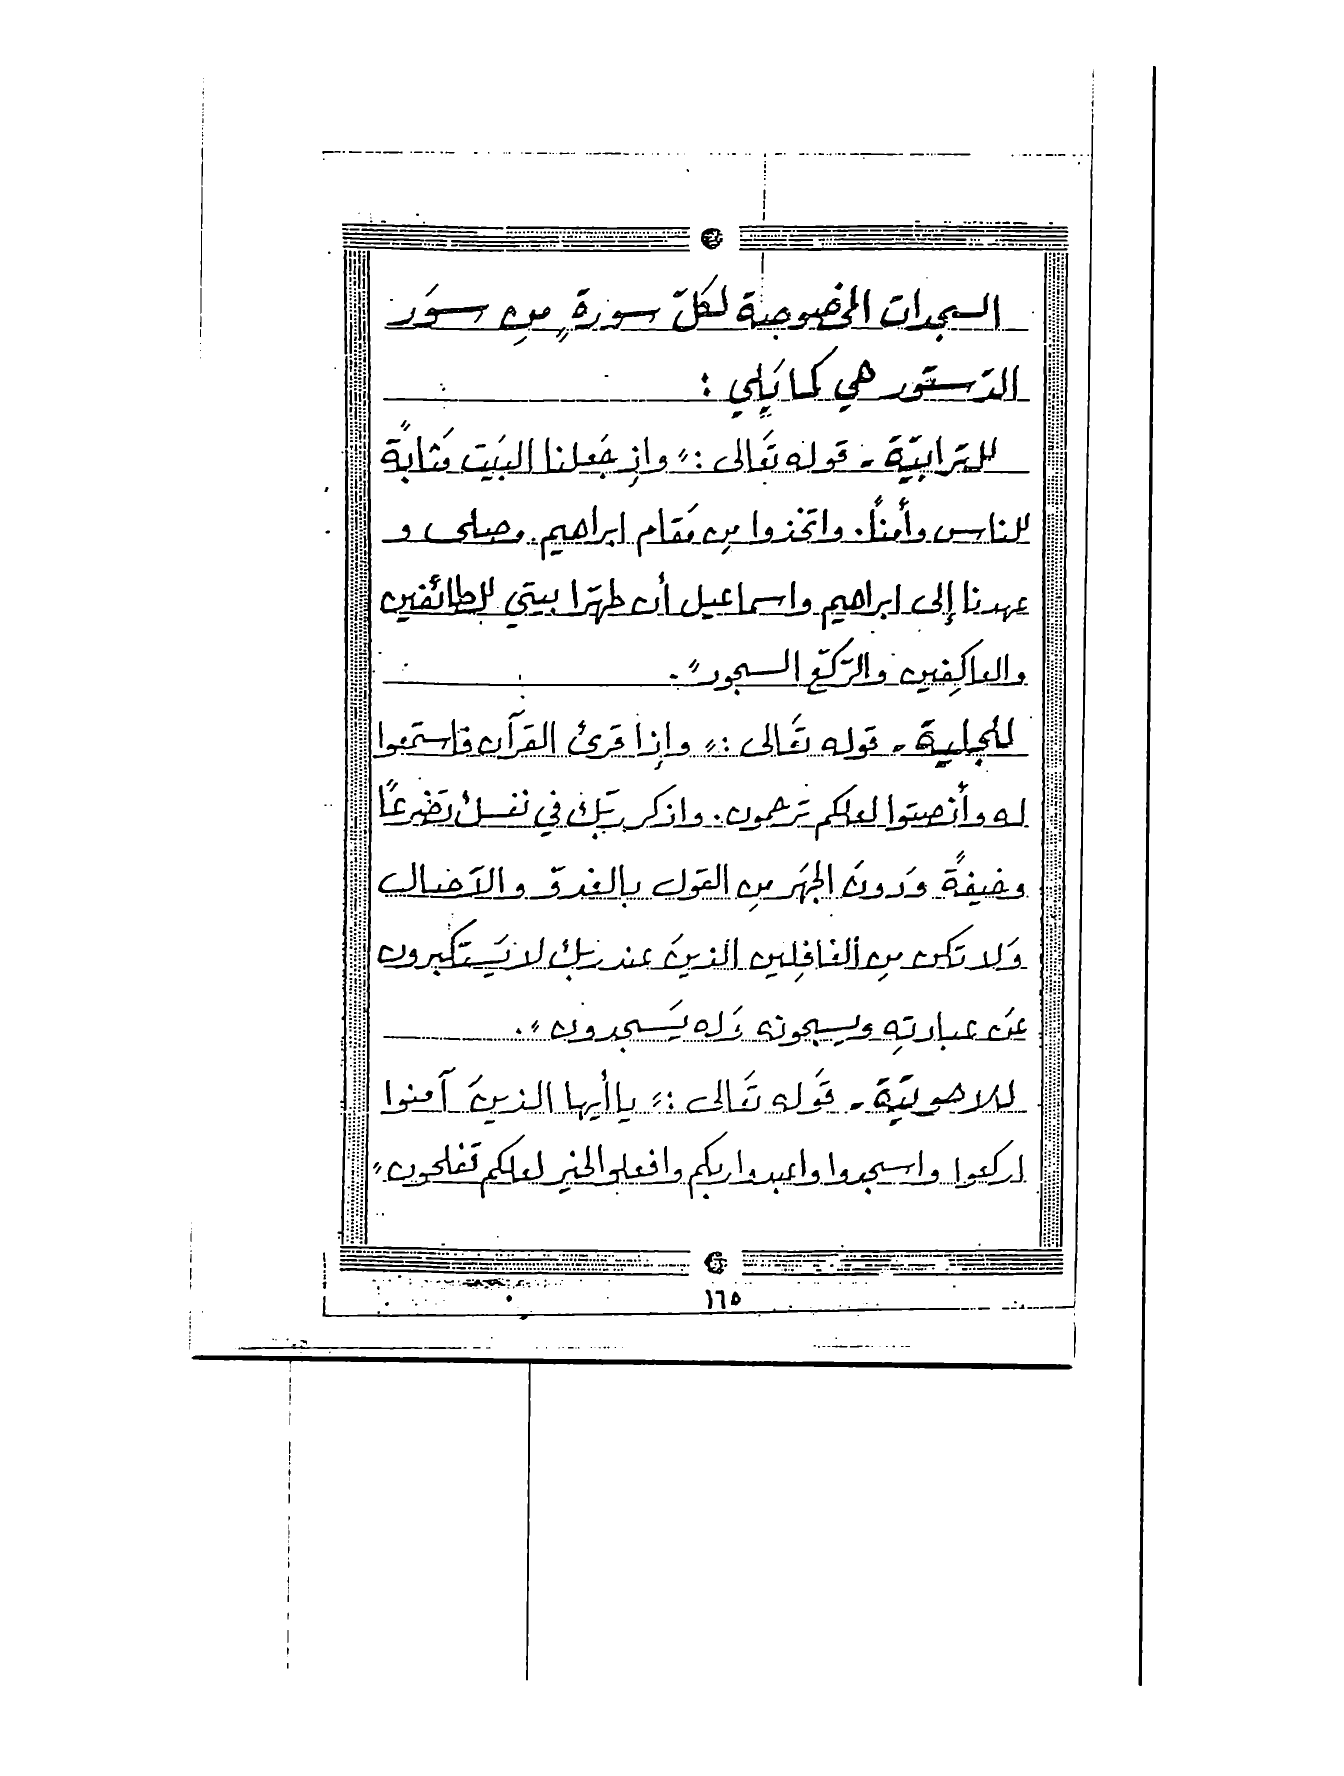 السجدات المخصوصة لكلّ سورةٍ مِن سوَر
الدّستور هي كما يَلِي :
للترابيّة - قوله تعَالى : " وإذ جَعلنا البَيت مَثابَةً
للناس وأمناً. واتخذوا مِن مَقام ابراهيم. وصلى و
عهدنا إلى ابراهيم واسماعيل أن طهّرا بيتي للطائفين
والعاكِفين والرّكّع السجود ".
للجلية - قوله تعَالى : " وإذا قرئ القرآن فاستمَعوا
له وأنصتوا لعلكم ترحمون. واذكر ربّك في نفسك تضرعاً
وخيفةً وَدونَ الجهَر مِن القول بالغدوّ والآصال
وَلا تكن مِن الغافِلين الذينَ عند ربّك لا يَستكبرون
عَن عبادتِه ويسبحونه وَله يَسجدون ".
للاحوليّة - قَوله تعَالى : " يا أيها الذينَ آمنوا
اركعوا واسجدوا واعبدوا ربكم وافعلوا الخير لعلكم تفلحون "
١٦٥